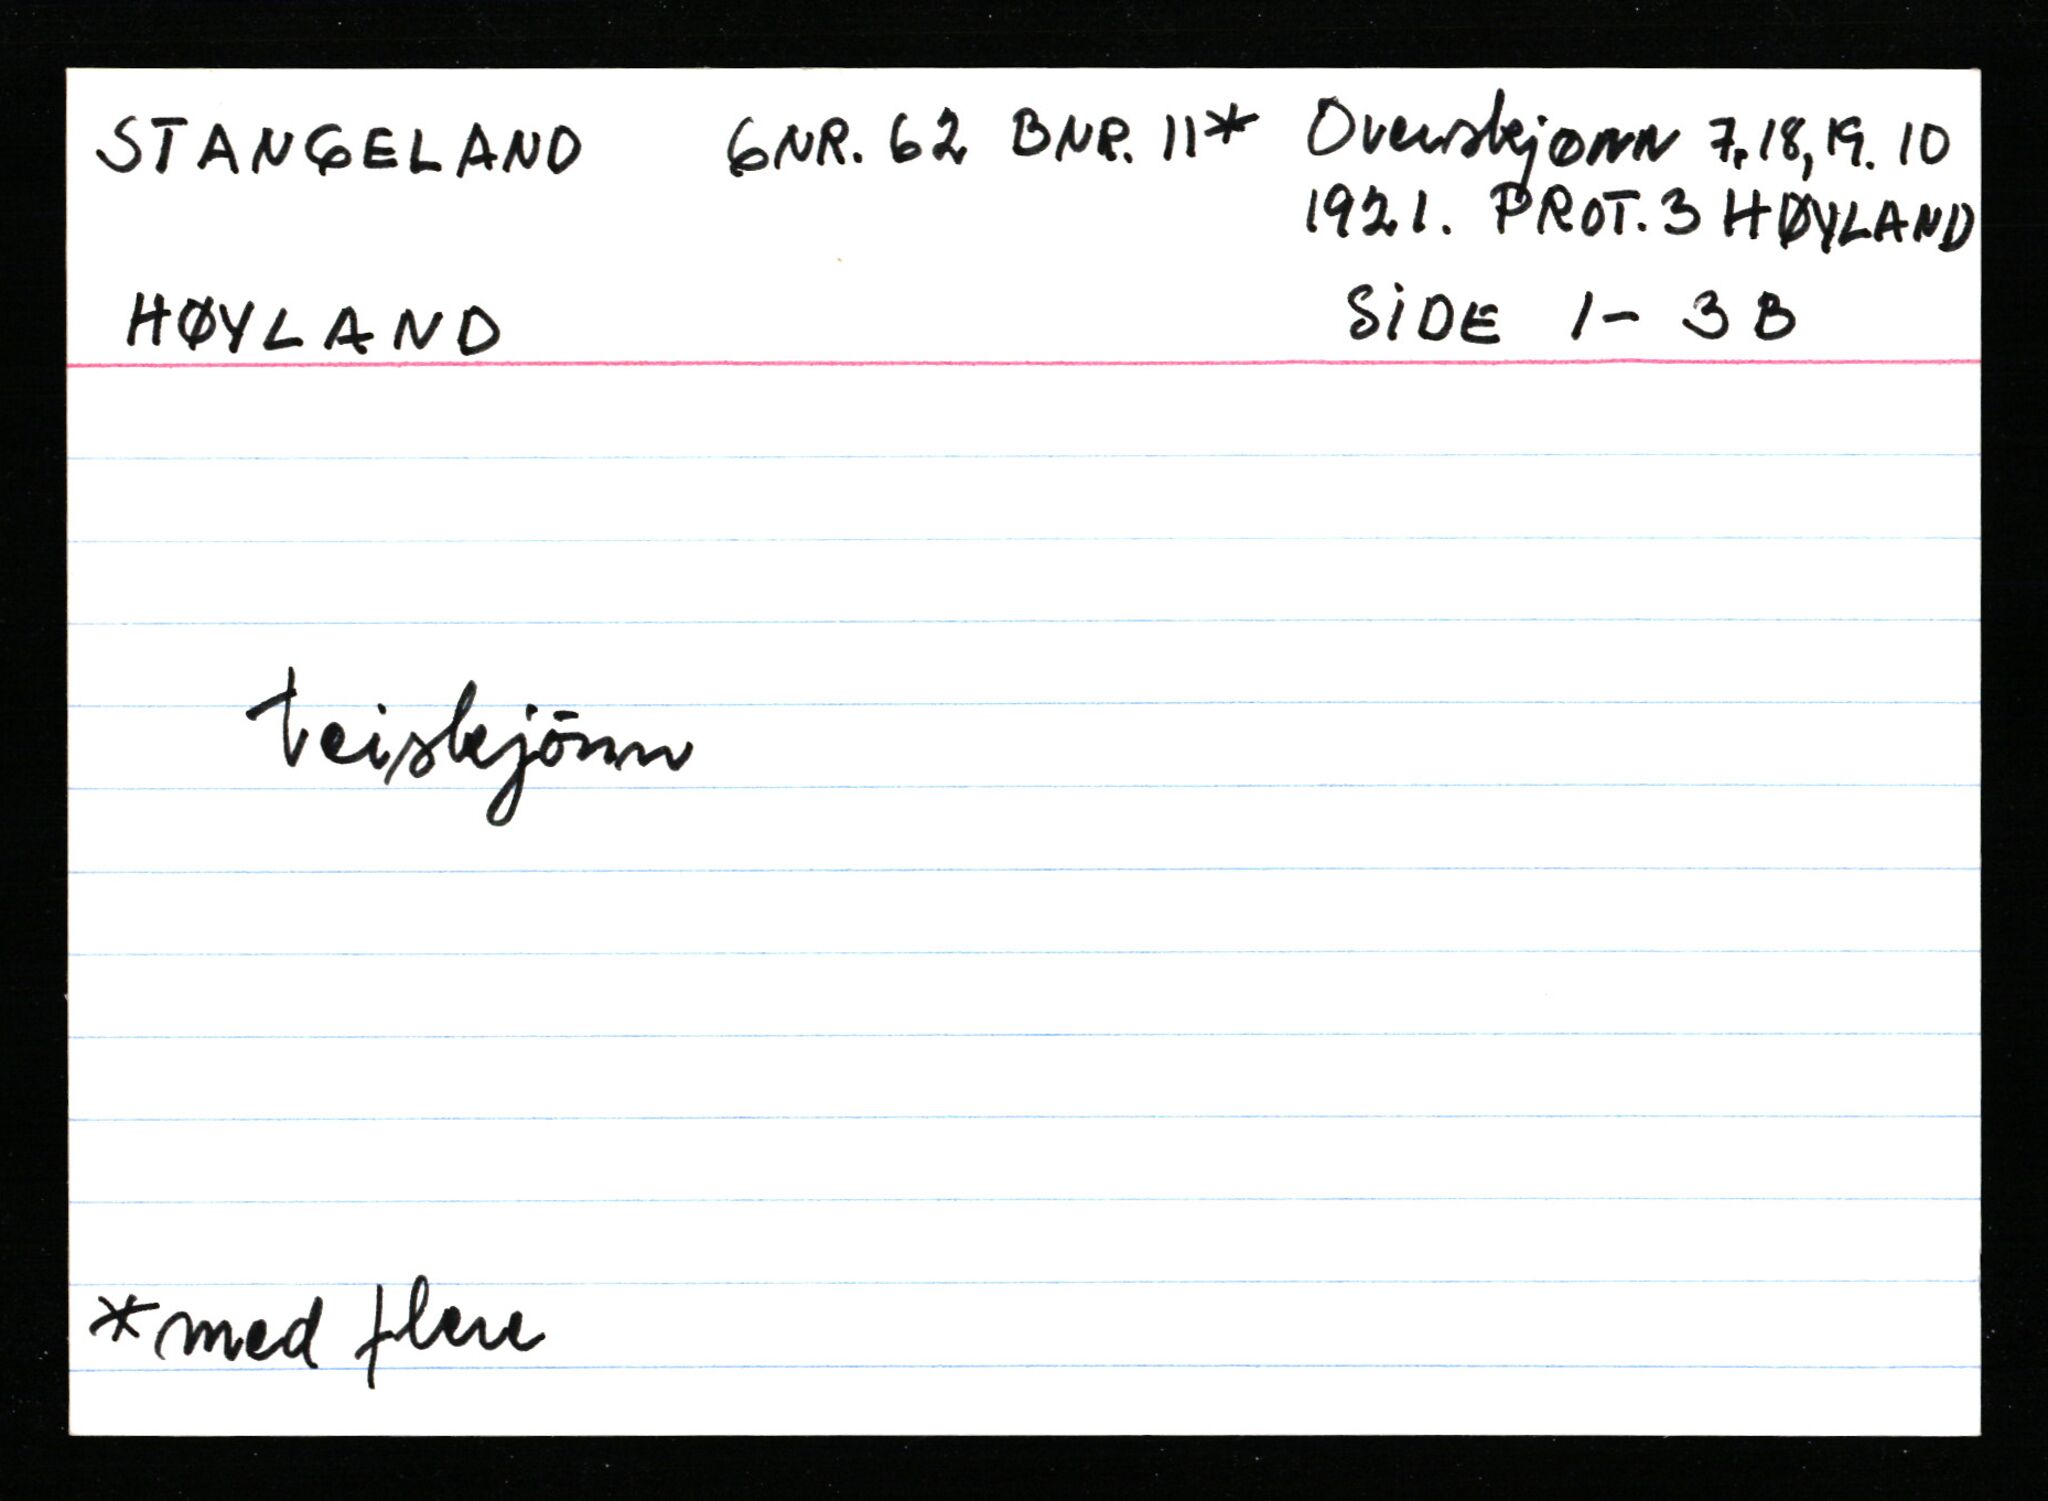 STANGELAND GNR. 62 BNR. 11* Overskjønn 7, 18, 19. 10
1921. PROT. 3 HØYLAND
HØYLAND SIDE 1 - 3 B
Veiskjönn
*med flere